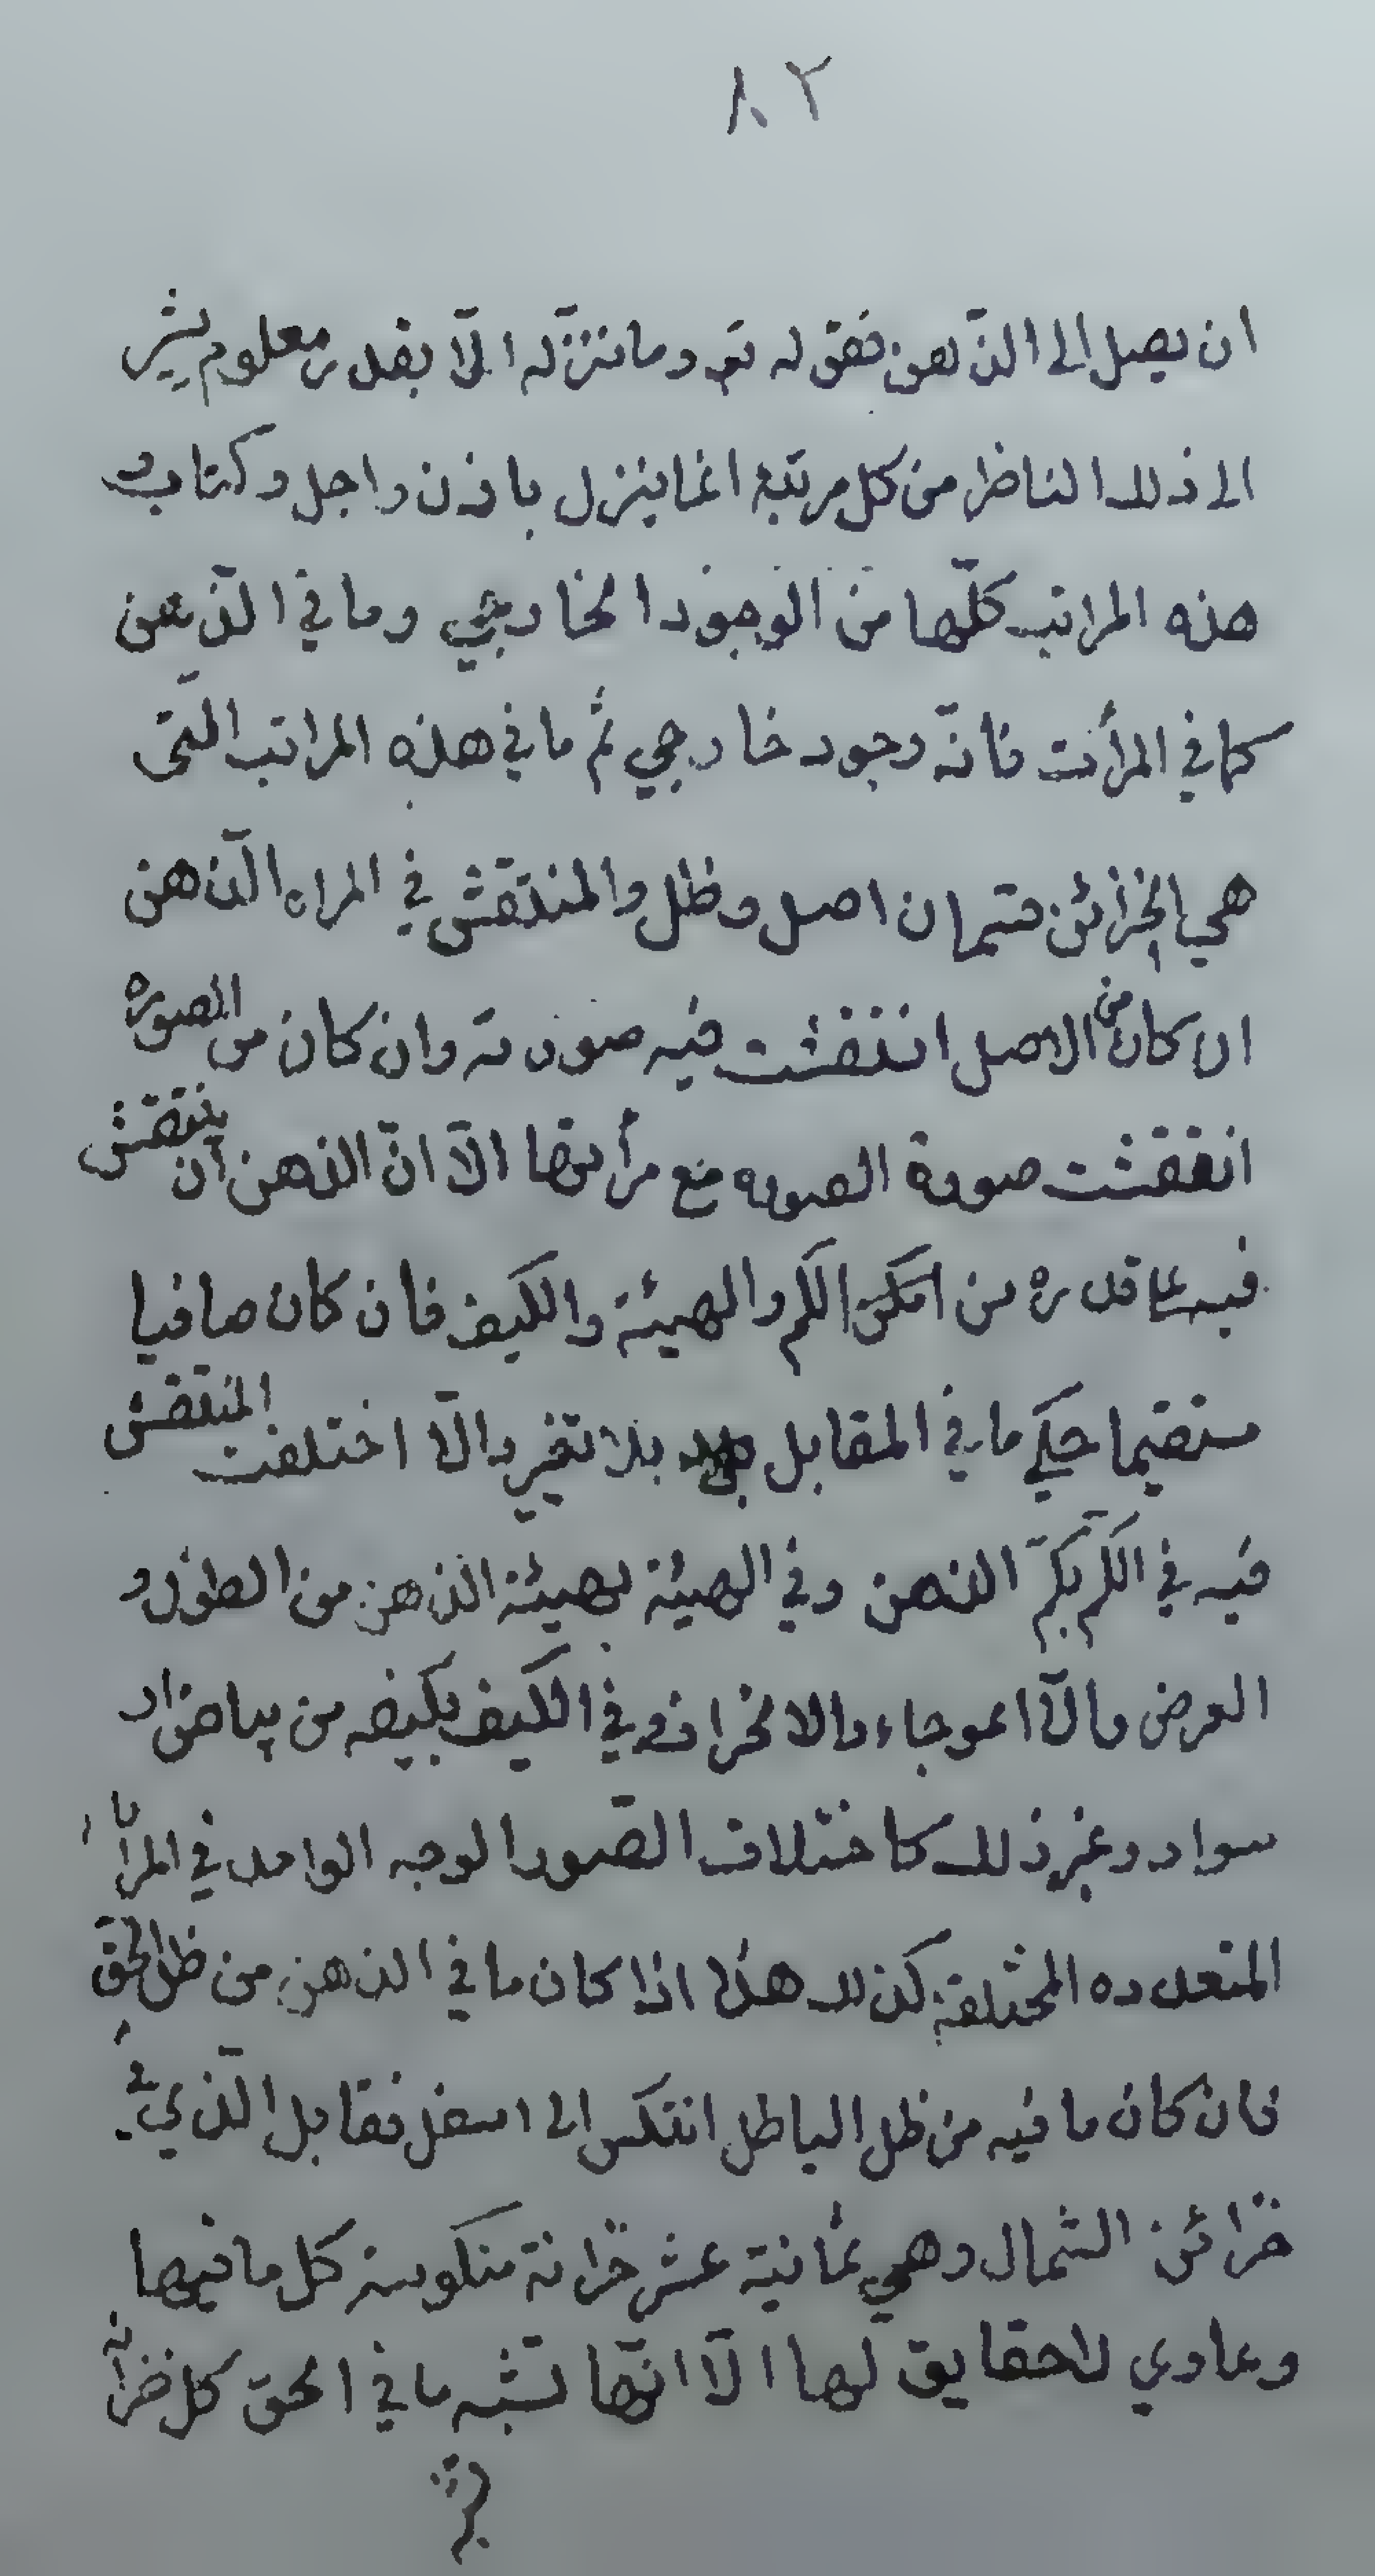 ٨٢
ان يصل الى الذهن فقوله تم وما ننزله الّا بقدر معلوم يشير
الى ذلك الناظر من كل مرتبة انما ينزل باذن واجل وكتاب و
هذه المراتب كلّها من الوجود الخارجي وما في الذّهن
كما في المرأت فانّه وجود خارجي ثم ما في هذه المراتب الّتى
هي الخزائن قسمان اصل وظل والمنتقش في المراه الذّهن
ان كان من الاصل انتقشت فيه صورته وان كان من الصوره
انتقشت صورة الصوره مع مرأتها الّا انّ الذهن ان ينتقش
فيه على قدره من الكم والهيئة والكيف فان كان صافيا
مستقيما حكي ما في المقابل بلا تغير والّا اختلفت المنتقش
فيه في الكم بكمّ الذهن وفي الهيئة بهيئة الذهن من الطول و
العرض والاعوجاء والانحراف وفي الكيف بكيفه من بياض او
سواد وغير ذلك كاختلاف الصّور الوجه الواحد في المرايا
المتعدده المختلفة كذلك هذا اذا كان ما في الذهن من ظل الحق
فان كان ما فيه من ظل الباطل انتكس الى اسفل فقابل الّذي في
خزائن الشمال وهي ثمانية عشر خزانة منكوسة كل ما فيها
دعاوي لاحقايق لها الّا انّها تشبه ما في الحق كل خزانه